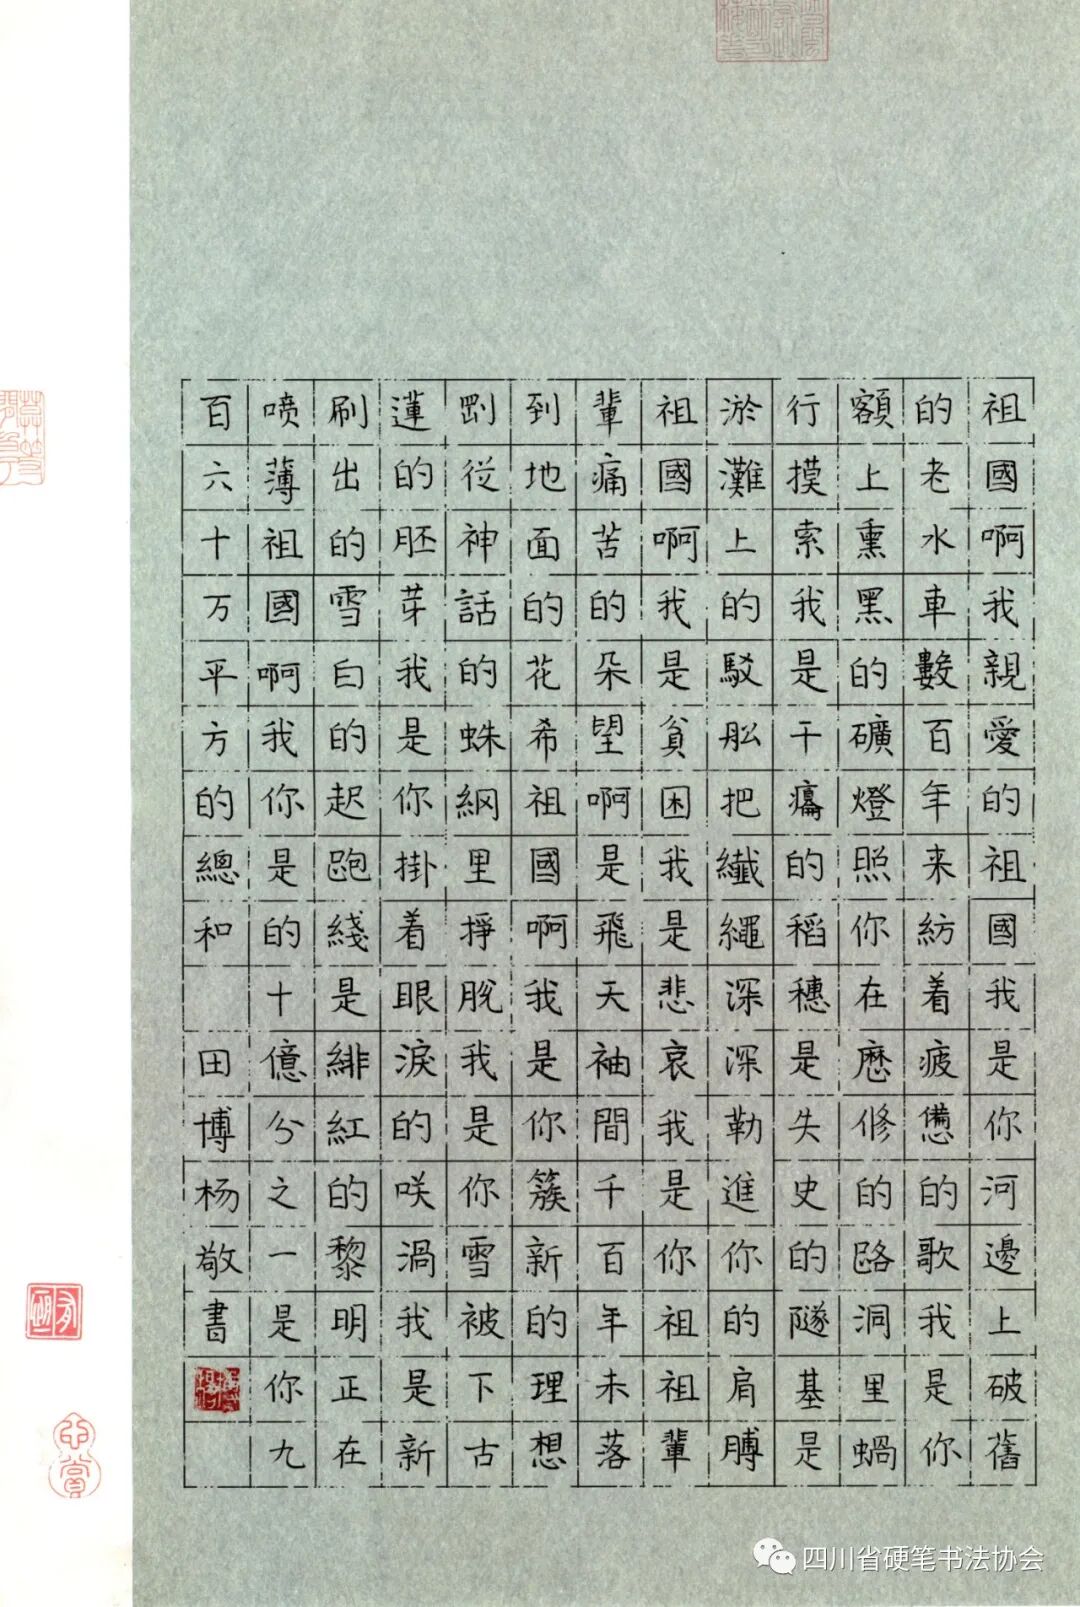 祖國啊我親愛的祖國我是你河邊上破舊
的老水車數百年来紡着疲憊的歌我是你
額上熏黑的礦燈照你在歷修的路洞里蝸
行摸索我是干癟的稻穗是失史的隧基是
淤灘上的駁船把纖繩深深勒進你的肩膊
祖國啊我是貧困我是悲哀我是你祖祖輩
輩痛苦的朵望啊是飛天袖間千百年未落
到地面的花希祖國啊我是你簇新的理想
剛從神話的蛛網里掙脫我是你雪被下古
蓮的胚芽我是你掛着眼淚的咲渦我是新
刷出的雪白的起跑綫是緋紅的黎明正在
喷薄祖國啊我你是的十億分之一是你九
百六十万平方的總和 田博杨敬書
四川省硬笔书法协会